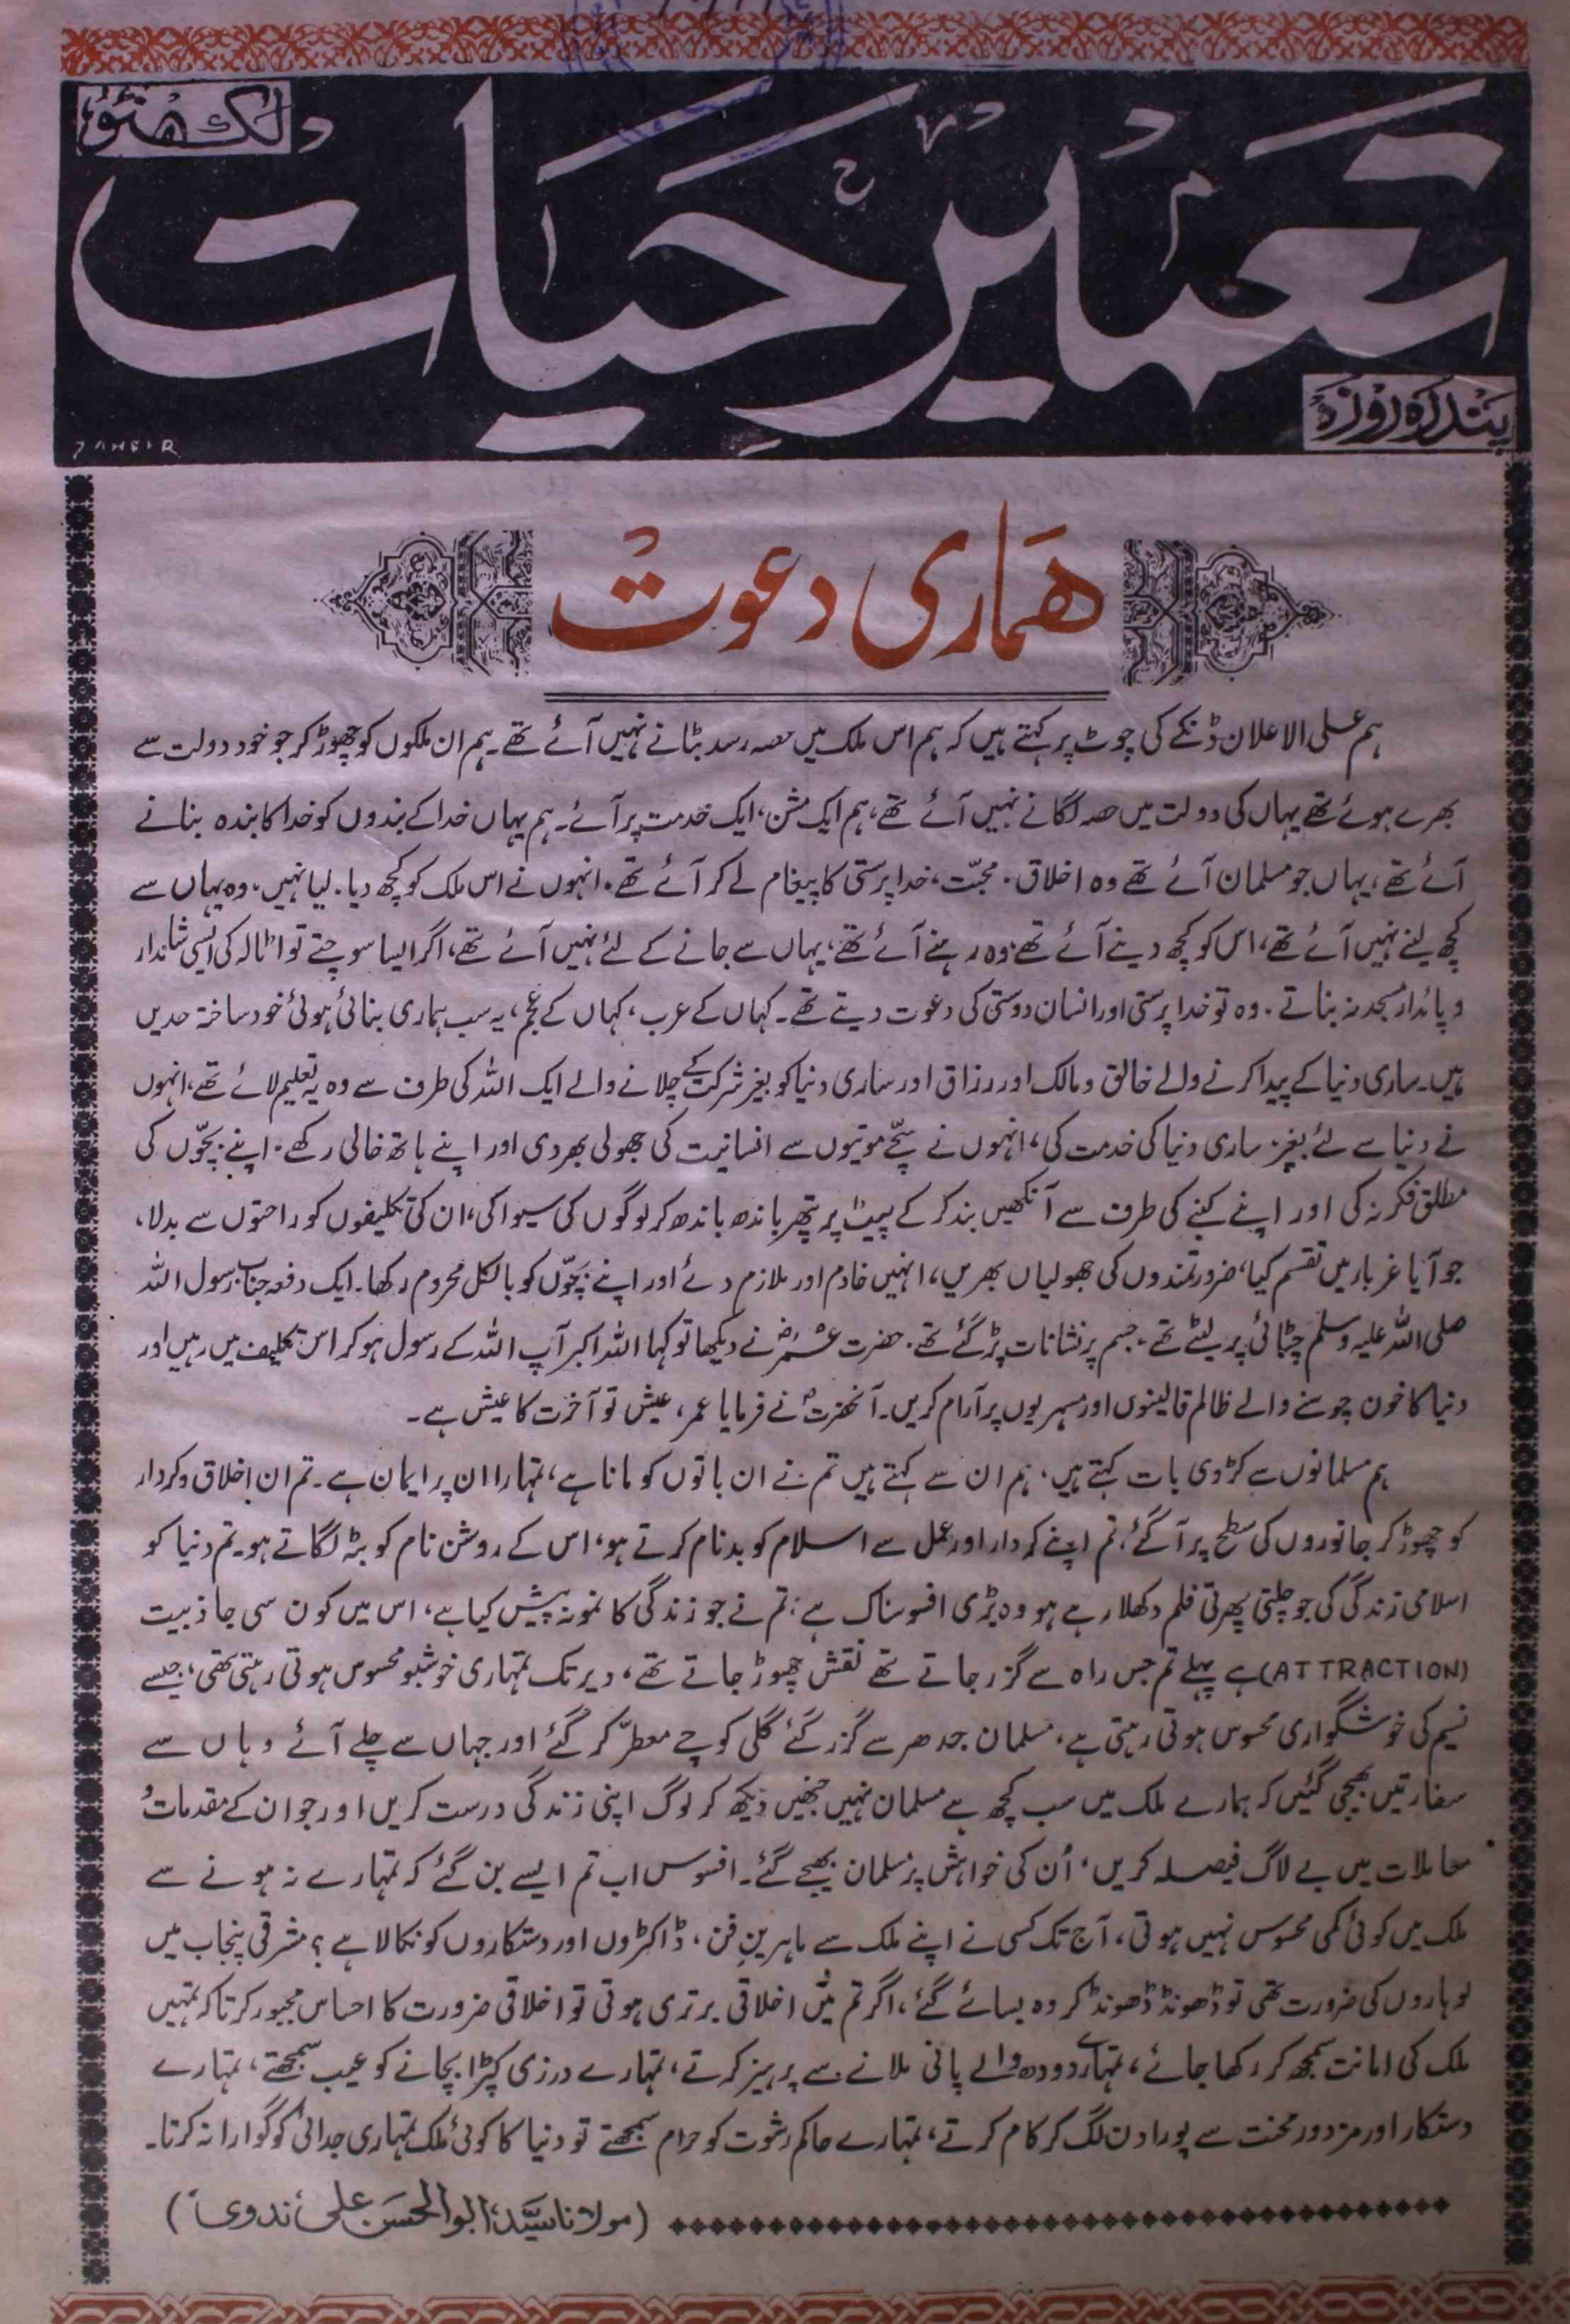 لکھنؤ
تعمیر حیات
پندرہ روزہ
ZAHEER
ھماری دعوت
ہم علی الاعلان ڈنکے کی چوٹ پر کہتے ہیں کہ ہم اس ملک میں حصہ رسد بٹانے نہیں آئے تھے۔ ہم ان ملکوں کو چھوڑ کر جو خود دولت سے
بھرے ہوئے تھے یہاں کی دولت میں حصہ لگانے نہیں آئے تھے، ہم ایک مشن، ایک خدمت پر آئے۔ ہم یہاں خدا کے بندوں کو خدا کا بندہ بنانے
آئے تھے، یہاں جو مسلمان آئے تھے وہ اخلاق، محبّت، خدا پرستی کا پیغام لے کر آئے تھے۔ انہوں نے اس ملک کو کچھ دیا۔ لیا نہیں، وہ یہاں سے
کچھ لینے نہیں آئے تھے، اس کو کچھ دینے آئے تھے، وہ رہنے آئے تھے، یہاں سے جانے کے لئے نہیں آئے تھے، اگر ایسا سوچتے تو اٹالہ کی ایسی شاندار
و پائدار مسجد نہ بناتے۔ وہ تو خدا پرستی اور انسان دوستی کی دعوت دیتے تھے۔ کہاں کے عرب، کہاں کے عجم، یہ سب ہماری بنائی ہوئی خود ساختہ حدیں
ہیں۔ ساری دنیا کے پیدا کرنے والے خالق و مالک اور رزاق اور ساری دنیا کو بغیر شرکت کے چلانے والے ایک اللہ کی طرف سے وہ یہ تعلیم لائے تھے، انہوں
نے دنیا سے لئے بغیر ساری دنیا کی خدمت کی، انہوں نے سچّے موتیوں سے انسانیت کی جھولی بھر دی اور اپنے ہاتھ خالی رکھے، اپنے بچّوں کی
مطلق فکر نہ کی اور اپنے کنبے کی طرف سے آنکھیں بند کر کے پیٹ پر پتھر باندھ باندھ کر لوگوں کی سیوا کی، ان کی تکلیفوں کو راحتوں سے بدلا،
جو آیا غرباء میں تقسیم کیا، ضرورتمندوں کی جھولیاں بھریں، انہیں خادم اور ملازم دئے اور اپنے بچّوں کو بالکل محروم رکھا۔ ایک دفعہ جناب رسول اللہ
صلی اللہ علیہ وسلم چٹائی پر لیٹے تھے۔ جسم پر نشانات پڑ گئے تھے۔ حضرت عمرؓ نے دیکھا تو کہا اللہ اکبر آپ اللہ کے رسول ہو کر اس تکلیف میں رہیں اور
دنیا کا خون چوسنے والے ظالم قالینوں اور مسہریوں پر آرام کریں۔ آنحضرتؐ نے فرمایا عمر، عیش تو آخرت کا عیش ہے۔
ہم مسلمانوں سے کڑوی بات کہتے ہیں، ہم ان سے کہتے ہیں تم نے ان باتوں کو مانا ہے، تمہارا ان پر ایمان ہے۔ تم ان اخلاق و کردار
کو چھوڑ کر جانوروں کی سطح پر آگئے، تم اپنے کردار اور عمل سے اسلام کو بدنام کرتے ہو، اس کے روشن نام کو بٹہ لگاتے ہو۔ تم دنیا کو
اسلامی زندگی کی جو چلتی پھرتی فلم دکھلا رہے ہو وہ بڑی افسوسناک ہے، تم نے جو زندگی کا نمونہ پیش کیا ہے، اس میں کون سی جاذبیت
(ATTRACTION) ہے پہلے تم جس راہ سے گزر جاتے تھے نقش چھوڑ جاتے تھے، دیر تک تمہاری خوشبو محسوس ہوتی رہتی تھی، جیسے
نسیم کی خوشگواری محسوس ہوتی رہتی ہے، مسلمان جدھر سے گزر گئے گلی کوچے معطّر کر گئے اور جہاں سے چلے آئے وہاں سے
سفارتیں بھیجی گئیں کہ ہمارے ملک میں سب کچھ ہے مسلمان نہیں جنھیں دیکھ کر لوگ اپنی زندگی درست کریں اور جو ان کے مقدمات و
معاملات میں بے لاگ فیصلہ کریں، اُن کی خواہش پر مسلمان بھیجے گئے۔ افسوس اب تم ایسے بن گئے کہ تمہارے نہ ہونے سے
ملک میں کوئی کمی محسوس نہیں ہوتی، آج تک کسی نے اپنے ملک سے ماہرین فن، ڈاکٹروں اور دستکاروں کو نکالا ہے؟ مشرقی پنجاب میں
لوہاروں کی ضرورت تھی تو ڈھونڈ ڈھونڈ کر وہ بسائے گئے، اگر تم میں اخلاقی برتری ہوتی تو اخلاقی ضرورت کا احساس مجبور کرتا کہ تمہیں
ملک کی امانت سمجھ کر رکھا جائے، تمہارے دودھ والے پانی ملانے سے پرہیز کرتے، تمہارے درزی کپڑا بچانے کو عیب سمجھتے، تمہارے
دستکار اور مزدور محنت سے پورا دن لگ کر کام کرتے، تمہارے حاکم رشوت کو حرام سمجھتے تو دنیا کا کوئی ملک تمہاری جدائی کو گوارا نہ کرتا۔
(مولانا سیّد ابو الحسن علی ندوی)